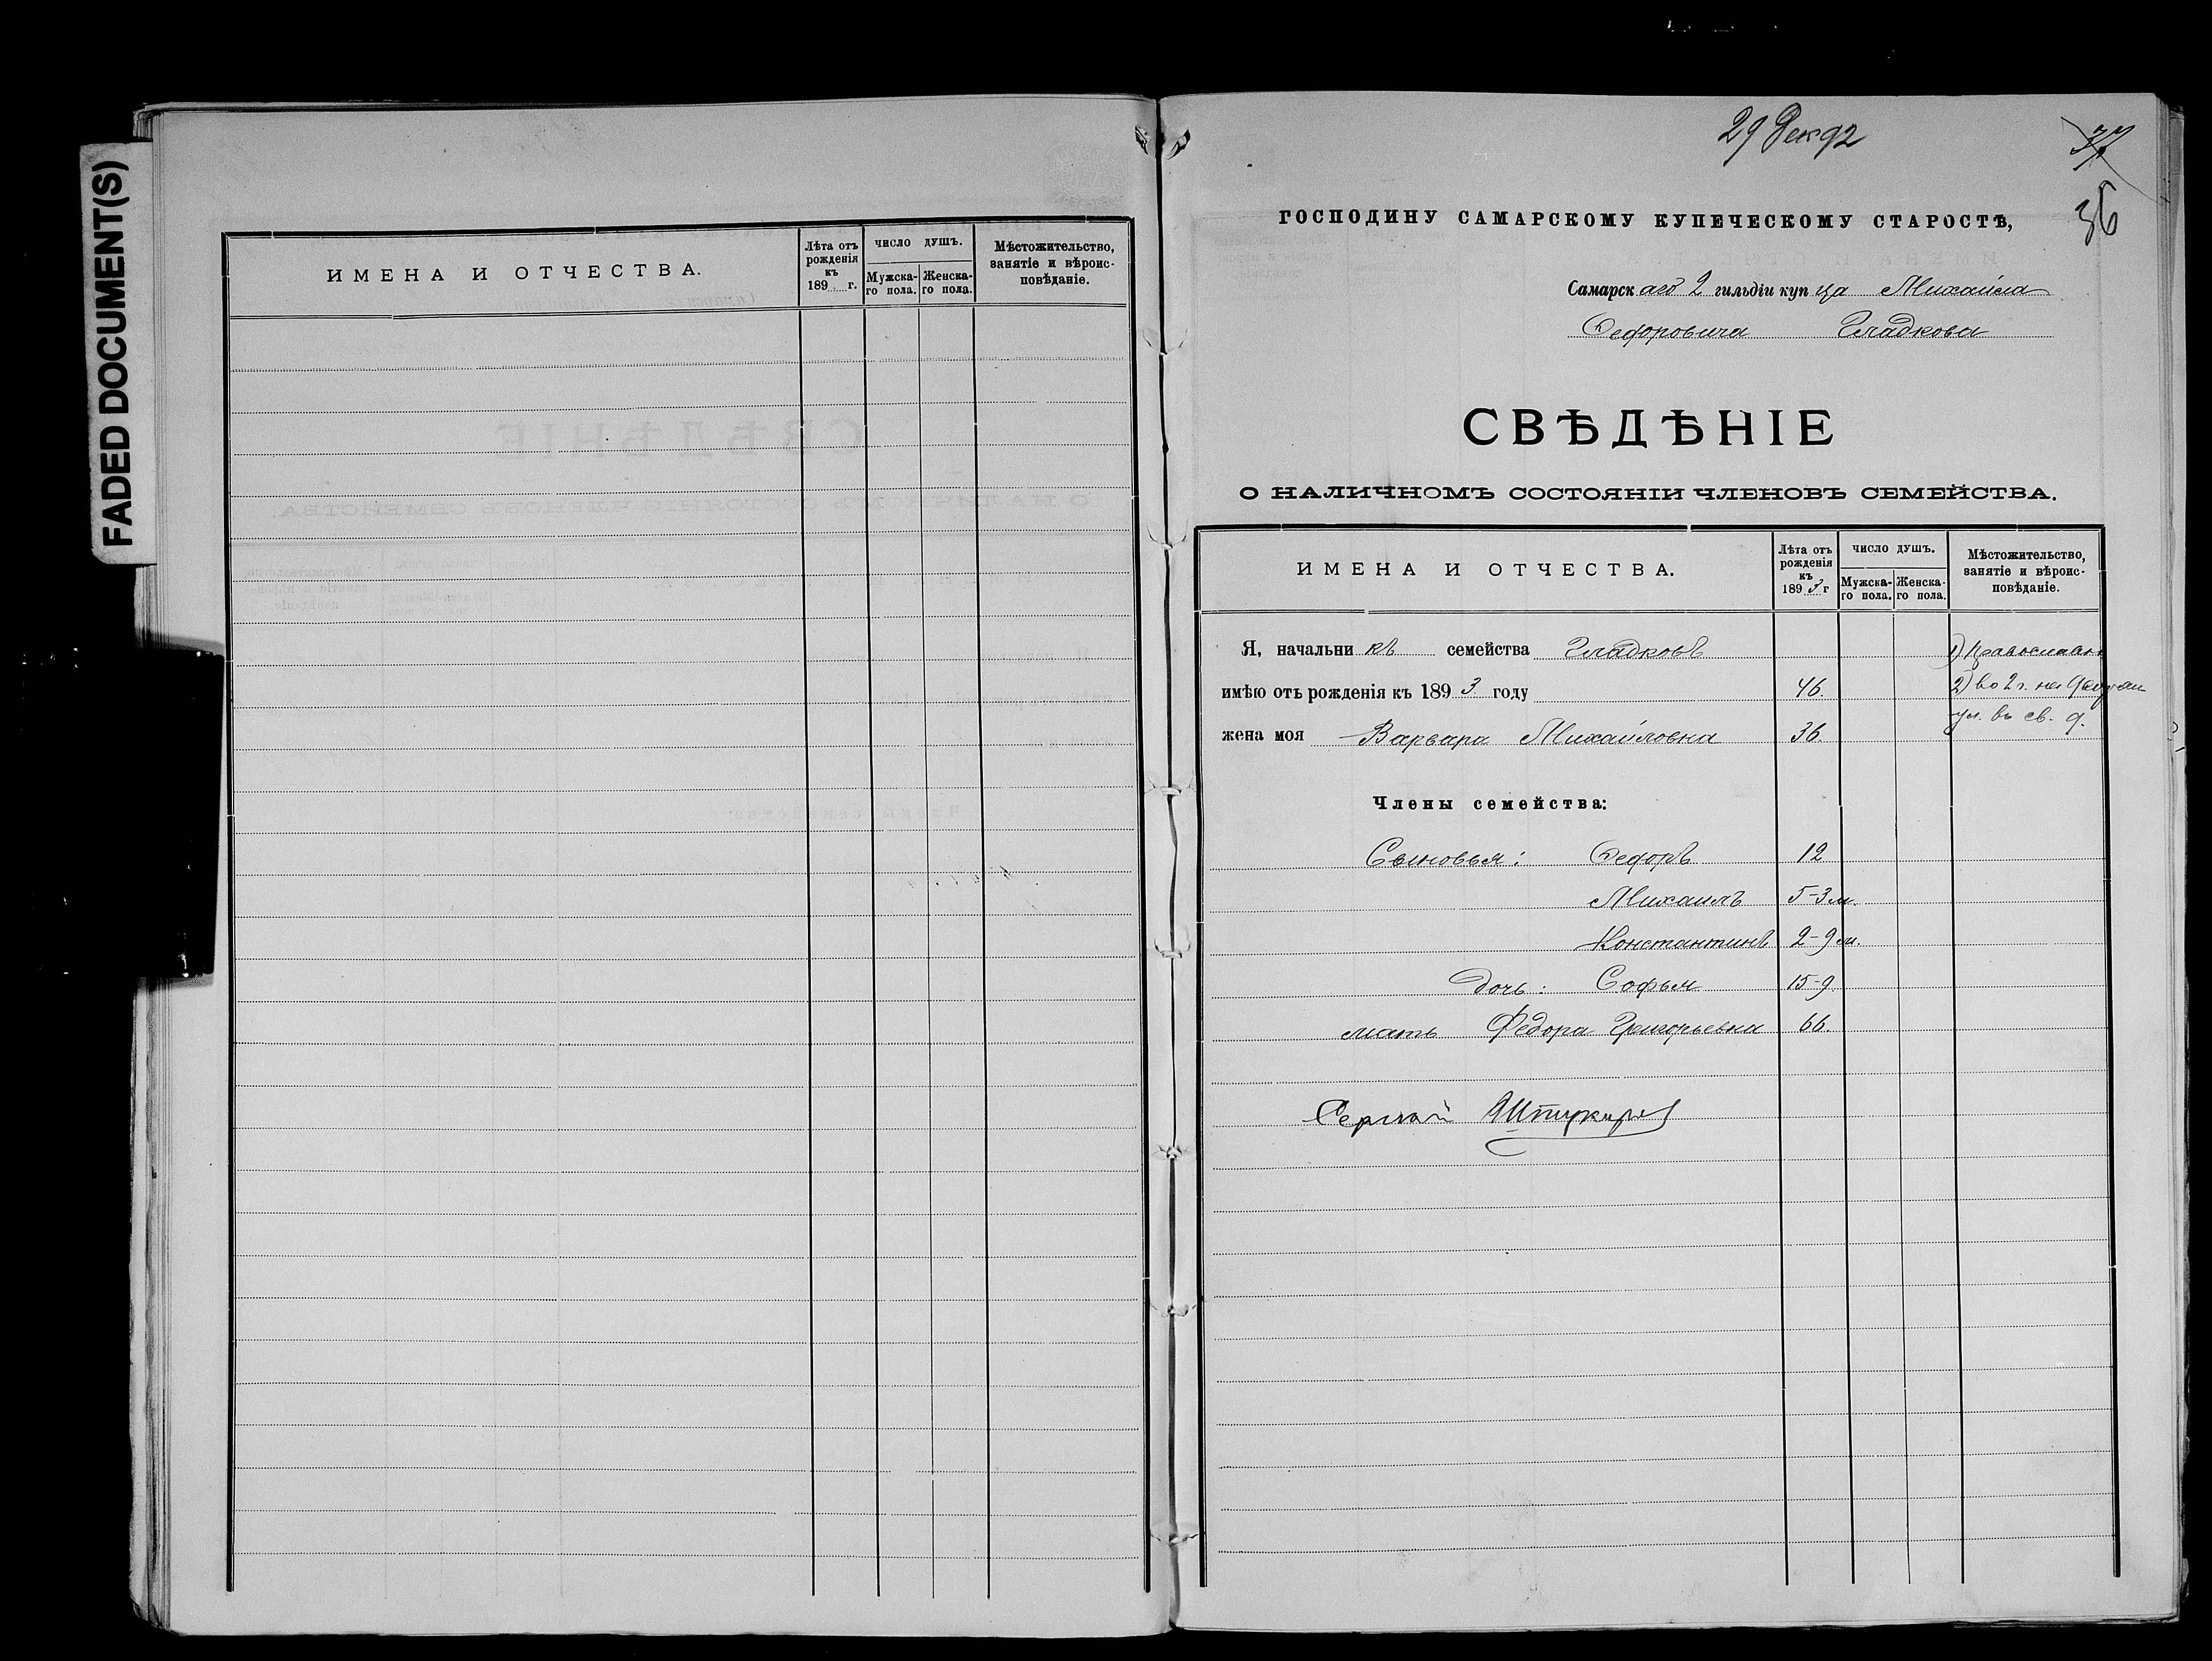 FADED DOCUMENT(S)
ИМЕНА И ОТЧЕСТВА.
Лѣта отъ
рожденія
къ
189 г.
ЧИСЛО ДУШЪ.
Мужска-
го пола.
Женска-
го пола.
Мѣстожительство,
занятіе и вѣроис-
повѣданіе.
29 Дек 92
37
36
ГОСПОДИНУ САМАРСКОМУ КУПЕЧЕСКОМУ СТАРОСТѢ,
Самарскаго 2 гильдіи купца Михаила
Федоровича Гладкова
СВѢДѢНІЕ
О НАЛИЧНОМЪ СОСТОЯНІИ ЧЛЕНОВЪ СЕМЕЙСТВА.
ИМЕНА И ОТЧЕСТВА.
Лѣта отъ
рожденія
къ
1893 г
ЧИСЛО ДУШЪ.
Мужска-
го пола.
Женска-
го пола.
Мѣстожительство,
занятіе и вѣроис-
повѣданіе.
Я, начальникъ семейства Гладковъ 1) Православн
имѣю отъ рожденія къ 1893 году 46. 2) во 2 г. на
ул. въ св. д.
жена моя Варвара Михайловна 36.
Члены семейства:
Сыновья: Федоръ 12
Михаилъ 5-3 м.
Константинъ 2-9 м.
Дочь: Софья 15-9
мать Федора Григорьевна 66.
Сергѣй